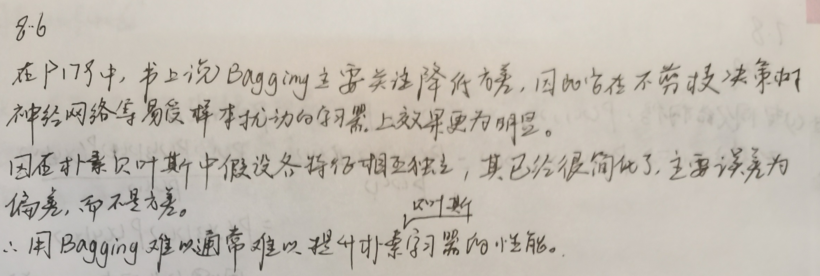 8.6
在P178中，书上说Bagging主要关注降低方差，因此它在不剪枝决策树
神经网络等易受样本扰动的学习器上效果更为明显。
因在朴素贝叶斯中假设各特征相互独立，其已经很简化了，主要误差为
偏差，而不是方差。
贝叶斯
∴用Bagging难以通常难以提升朴素学习器的性能。